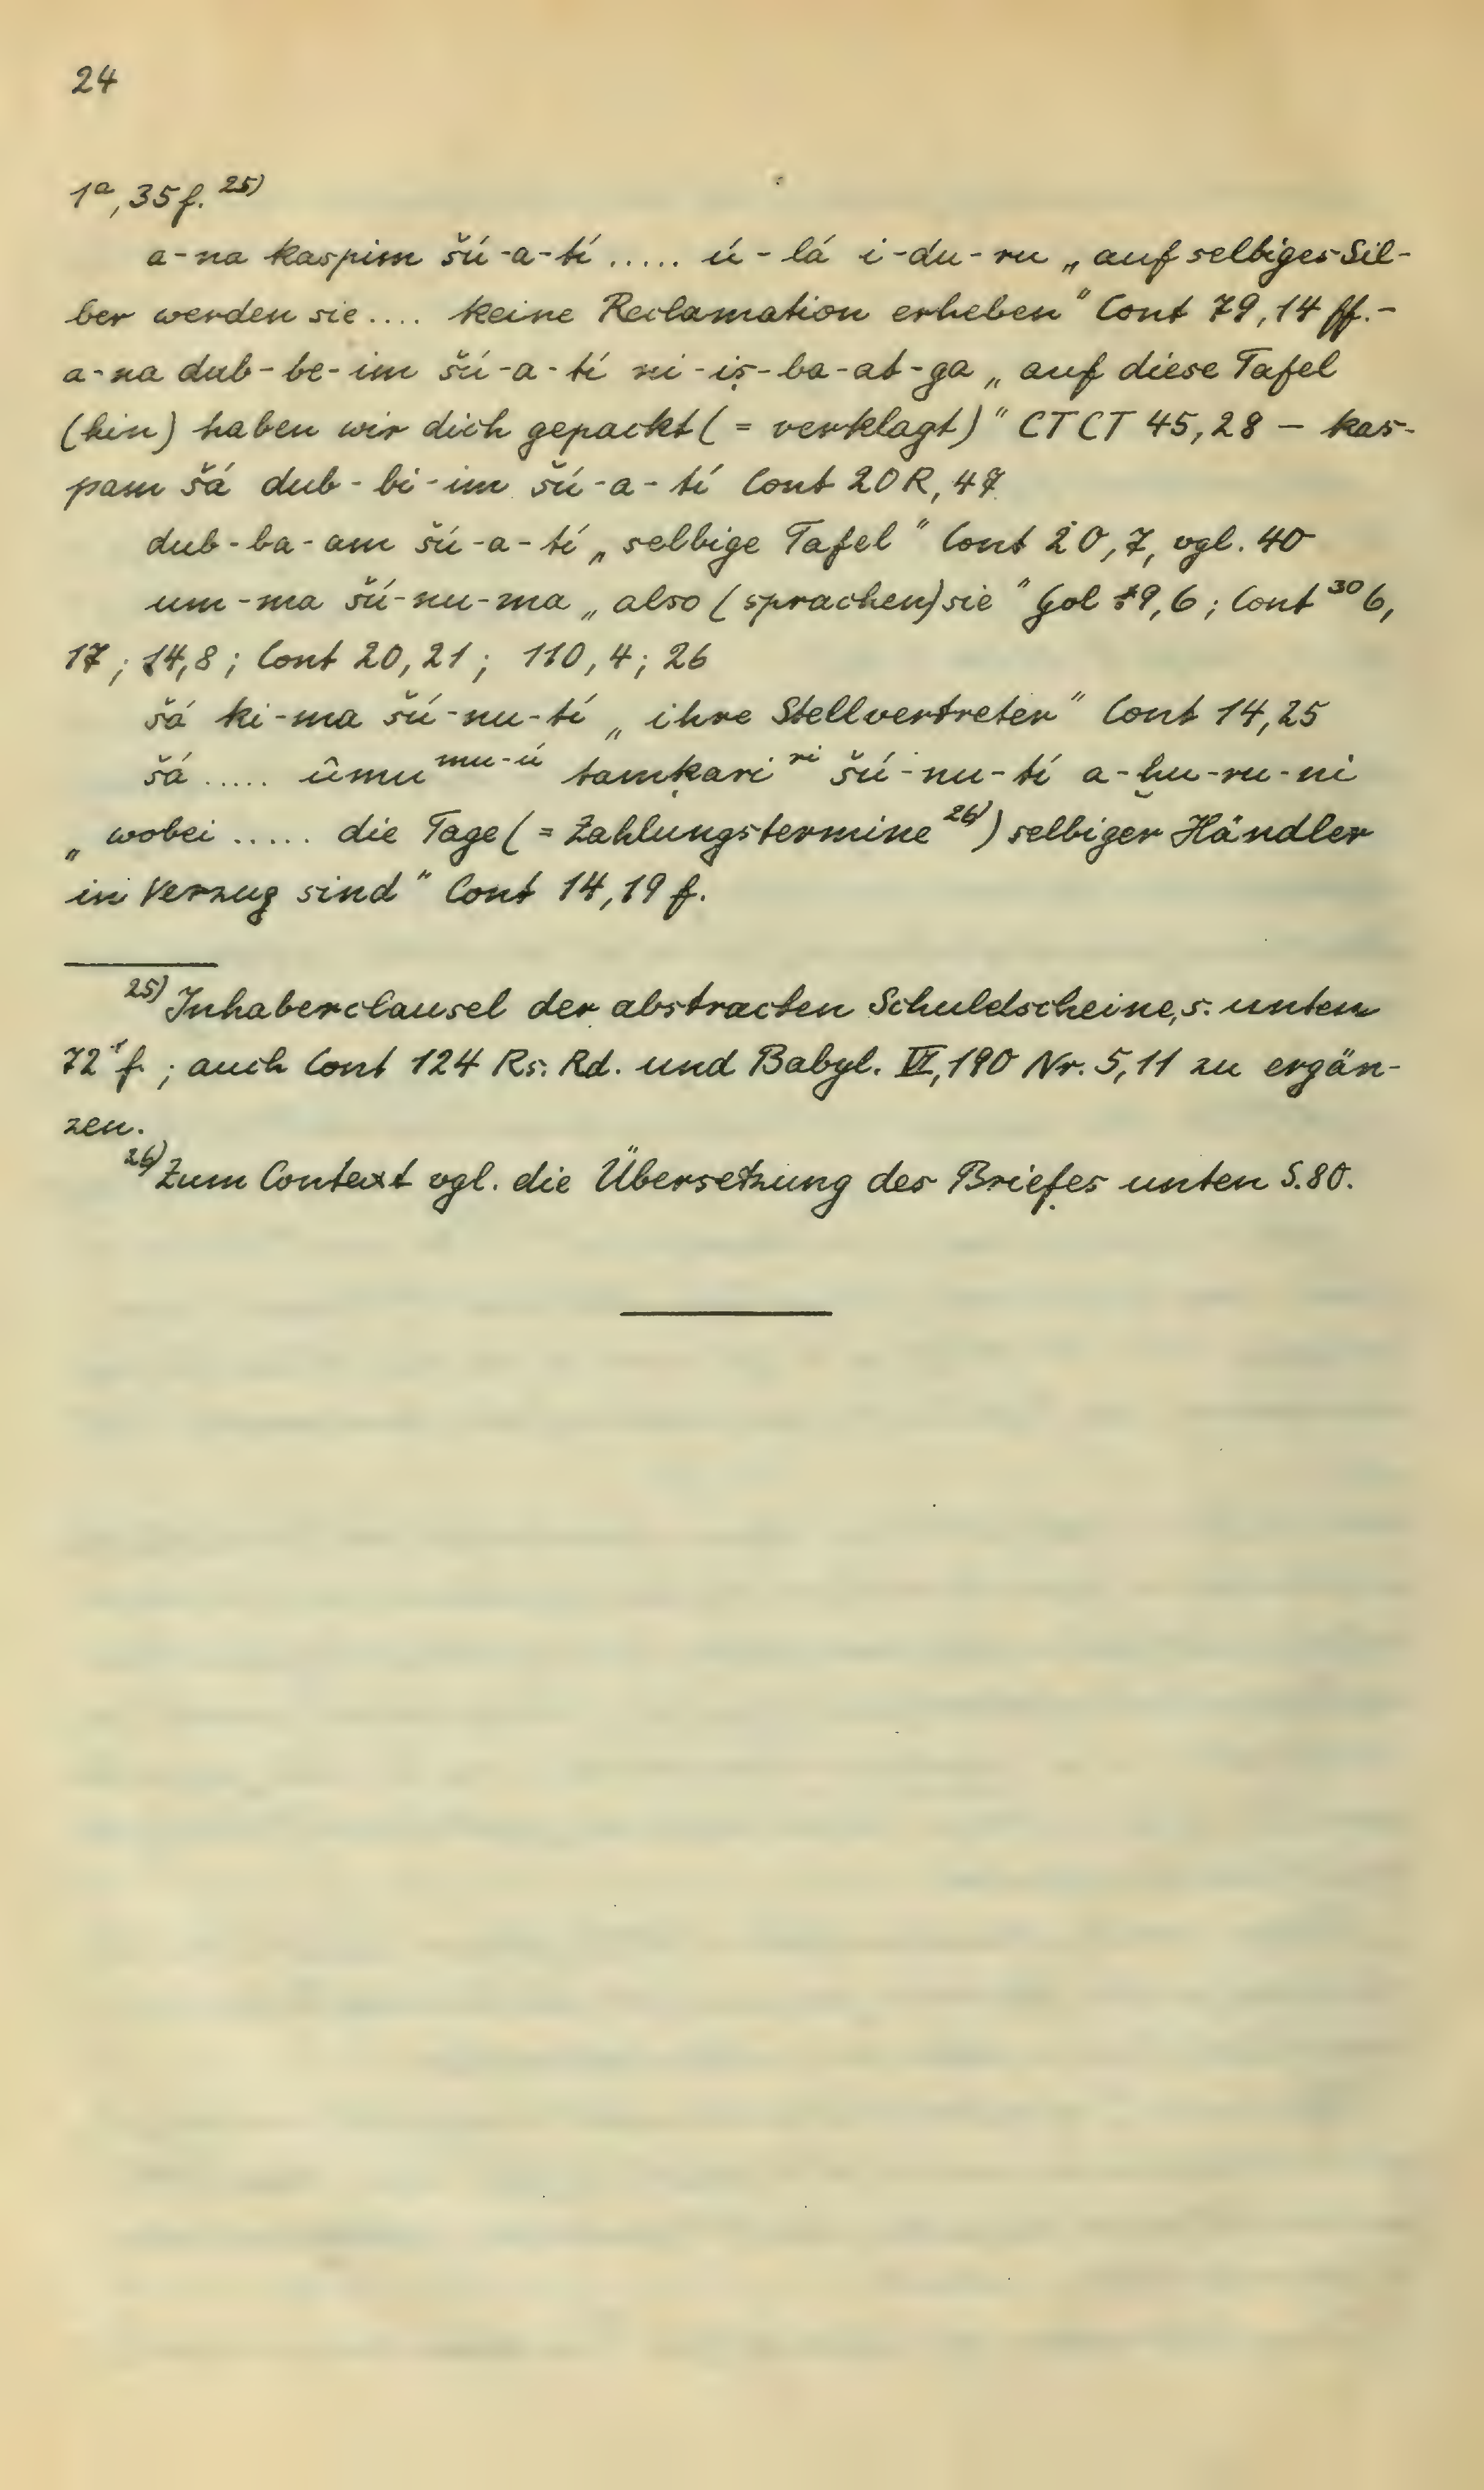 24
1a, 35 f. 25)
a-na kaspim šú-a-tí ..... ú-lá i-du-ru „auf selbiges Sil-
ber werden sie .... keine Reclamation erheben" Cont 79,14 ff. -
a-na dub-be-im šú-a-tí ni-iṣ-ba-at-ga „auf diese Tafel
(hin) haben wir dich gepackt (= verklagt)" CTCT 45,28 – kas-
pam šá dub-bi-im šú-a-tí Cont 20 R, 47
dub-ba-am šú-a-tí „selbige Tafel" Cont 20,7, vgl. 40
um-ma šú-nu-ma „also (sprachen) sie" Gol 19,6; Cont 30 6,
17; 14,8; Cont 20,21; 110,4; 26
šá ki-ma šú-nu-tí „ihre Stellvertreter" Cont 14,25
šá ..... ûmu mu-ú tamḳari ri šú-nu-tí a-ḫu-ru-ni
„wobei ..... die Tage (= Zahlungstermine 26)) selbiger Händler
in Verzug sind" Cont 14,19 f.
25) Inhaberclausel der abstracten Schuldscheine, s. unten
72 f.; auch Cont 124 Rs. Rd. und Babyl. VI, 190 Nr. 5,11 zu ergän-
zen.
26) Zum Context vgl. die Übersetzung des Briefes unten S. 80.